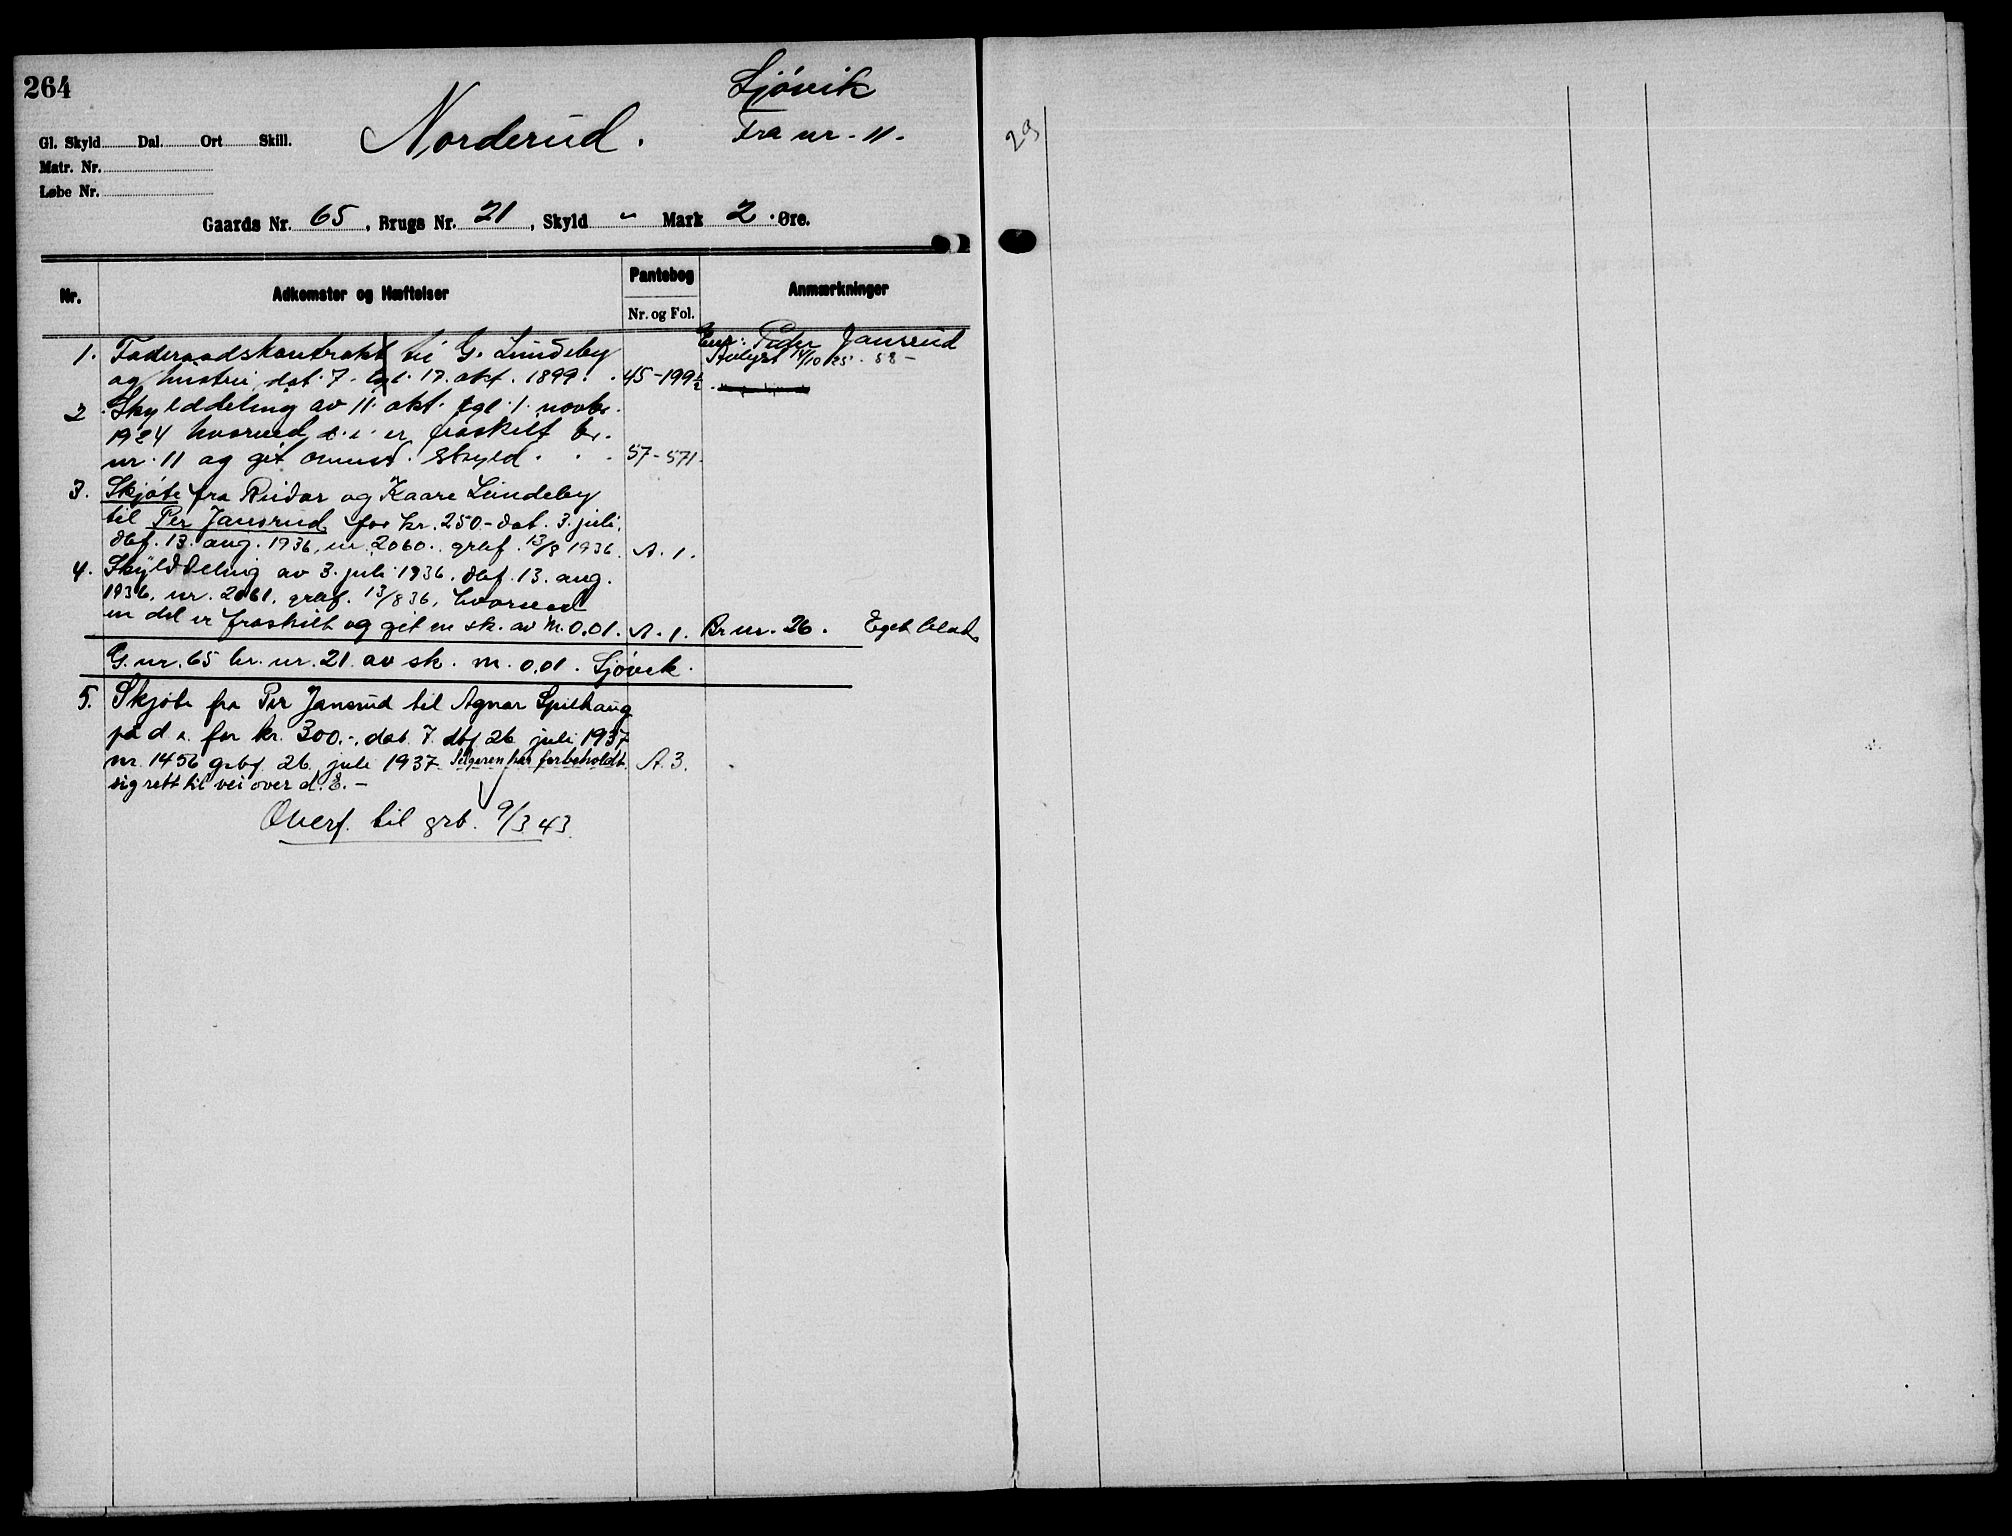 264
Sjövik
Norderud.
Fra nr. 11.
Gl. Skyld Dal. Ort Skill.
Matr. Nr.
Løbe Nr.
Gaards Nr. 65, Brugs Nr. 21, Skyld " Mark 2 Øre.
Nr. Adkomster og Hæftelser Pantebog Nr. og Fol. Anmærkninger
1. Føderaadskontrakt til G. Lundeby Peder Jansrud
og hustru, dat. 7. tgl. 17. okt. 1899. 45-199½ Avlyst 14/10 25. 58-
2. Skylddeling av 11. okt. tgl. 1. novbr.
1924 hvorved d. e. er fraskilt br.
nr. 11 og git ommed. skyld. 57-571.
3. Skjøte fra Reidar og Kaare Lundeby
til Per Jansrud for kr. 250.- dat. 3. juli,
dbf. 13. aug. 1936, nr. 2060. grbf. 13/8 1936. A. 1.
4. Skylddeling av 3. juli 1936, dbf. 13. aug.
1936, nr. 2061, grbf. 13/8 36, hvorved
en del er fraskilt og git en sk. av M. 0.01. A. 1. Br. nr. 26. Eget blad
G. nr. 65 br. nr. 21 av sk. m. 0.01. Sjövik.
5. Skjøte fra Per Jansrud til Agnar Spilhaug
på d. e. for kr. 300.-, dat. 7. dbf 26 juli 1937
nr. 1456 grbf 26. juli 1937. Selgeren har forbeholdt A. 3.
sig rett til vei over d. E. -
Overf. til grb. 9/3 43.
29